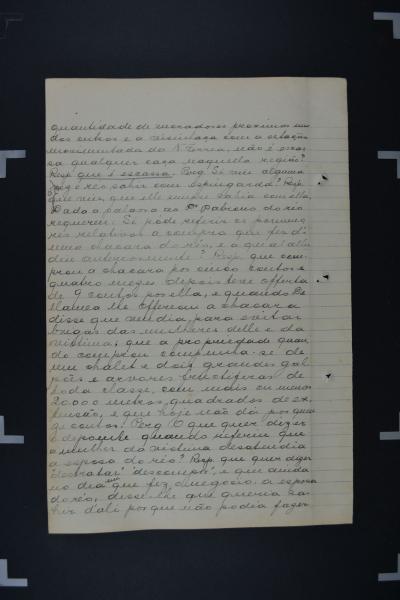 quantidade de moradores proximos uns
dos outros e a visinhaça com a estação
movimentada da V. Ferrea, não é escas
sa qualquer caça naquela região?
Resp. que é escassa. Perg. Se viu alguma
vez o réo sahir com espingarda? Resp.
que sim, que elle sempre sahia com ella.
Dada a palavra ao Dr. Patrono do réo
requereu: Se póde referir os pormeno
res relativos a compra que fez d'
uma chacara do réo, e a qual allu
diu anteriormente? Resp. que com
prou a chacara por cinco contos e
quatro mezes depois teve offerta
de 9 contos por ella, e quando
lhe offereceu a chacara
disse que vendia para evitar
brigas das mulheres delle e da
victima; que a propriedade quan
do comprou compunha-se de
um chalet e dois grandes gal
pões e arvores fructiferas de
toda classe, com mais ou menos
20000 metros quadrados de ex
tensão, e que hoje não dá por quin
ze contos. Perg. O que quer dizer
o depoente quando referiu que
a mulher da victima desafiava
a esposa do réo? Resp. que quer dizer
"descompor", e que ainda
no dia em que fez o negocio, a esposa
do réo, disse-lhe que queria sa
hir d'ali porque não podia fazer